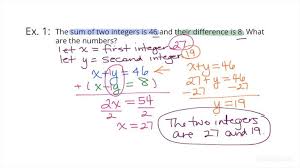 Ex. 1: The sum of two integers is 46 and their difference is 8. What
are the numbers?
let x = first integer 27
let y = second integer 19
x+y=46
+(x-y=8)
2x = 54
2 2
x=27
x+y=46
27+y=46
-27 -27
y=19
The two integers
are 27 and 19.